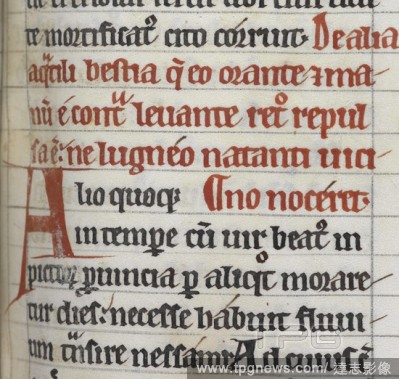 te mortificat᷒ cito corruit. De alia
aqͣtili bestia q̄ eo orante ⁊ ma
nū e cont͛ leuante ret͛o repul
sa ē: ne lugneo natanti uici
Alio quoqꝫ no noceret.
in tempore cū uir beat᷒ in
pictoꝝ ꝓuincia ꝑ aliqͦt morare
tur dies: necesse habuit fluui
um t͛nsire nessam: Ad cuius
www.tpgnews.com / 達志影像